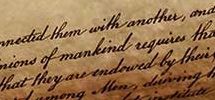 nnected them with another, and
nions of mankind requires tha
that they are endowed by their
among Men, deriving